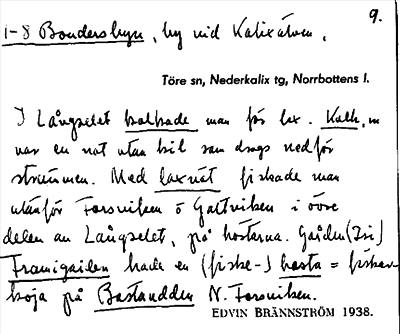 9.
1-8 Bondersbyn, by vid Kalixälven.
Töre sn, Nederkalix tg, Norrbottens l.
I Långselet kolkade man för lax. Kolk, m
var en not utan kil som drogs nedför
strömmen. Med laxnät fiskade man
utanför Forsviken o Gattviken i övre
delen av Långselet, på höstarna. Gården (Isi)
Framigården hade en (fiske-) basta = fiskar-
koja på Bastaudden N. Forsviken.
EDVIN BRÄNNSTRÖM 1938.